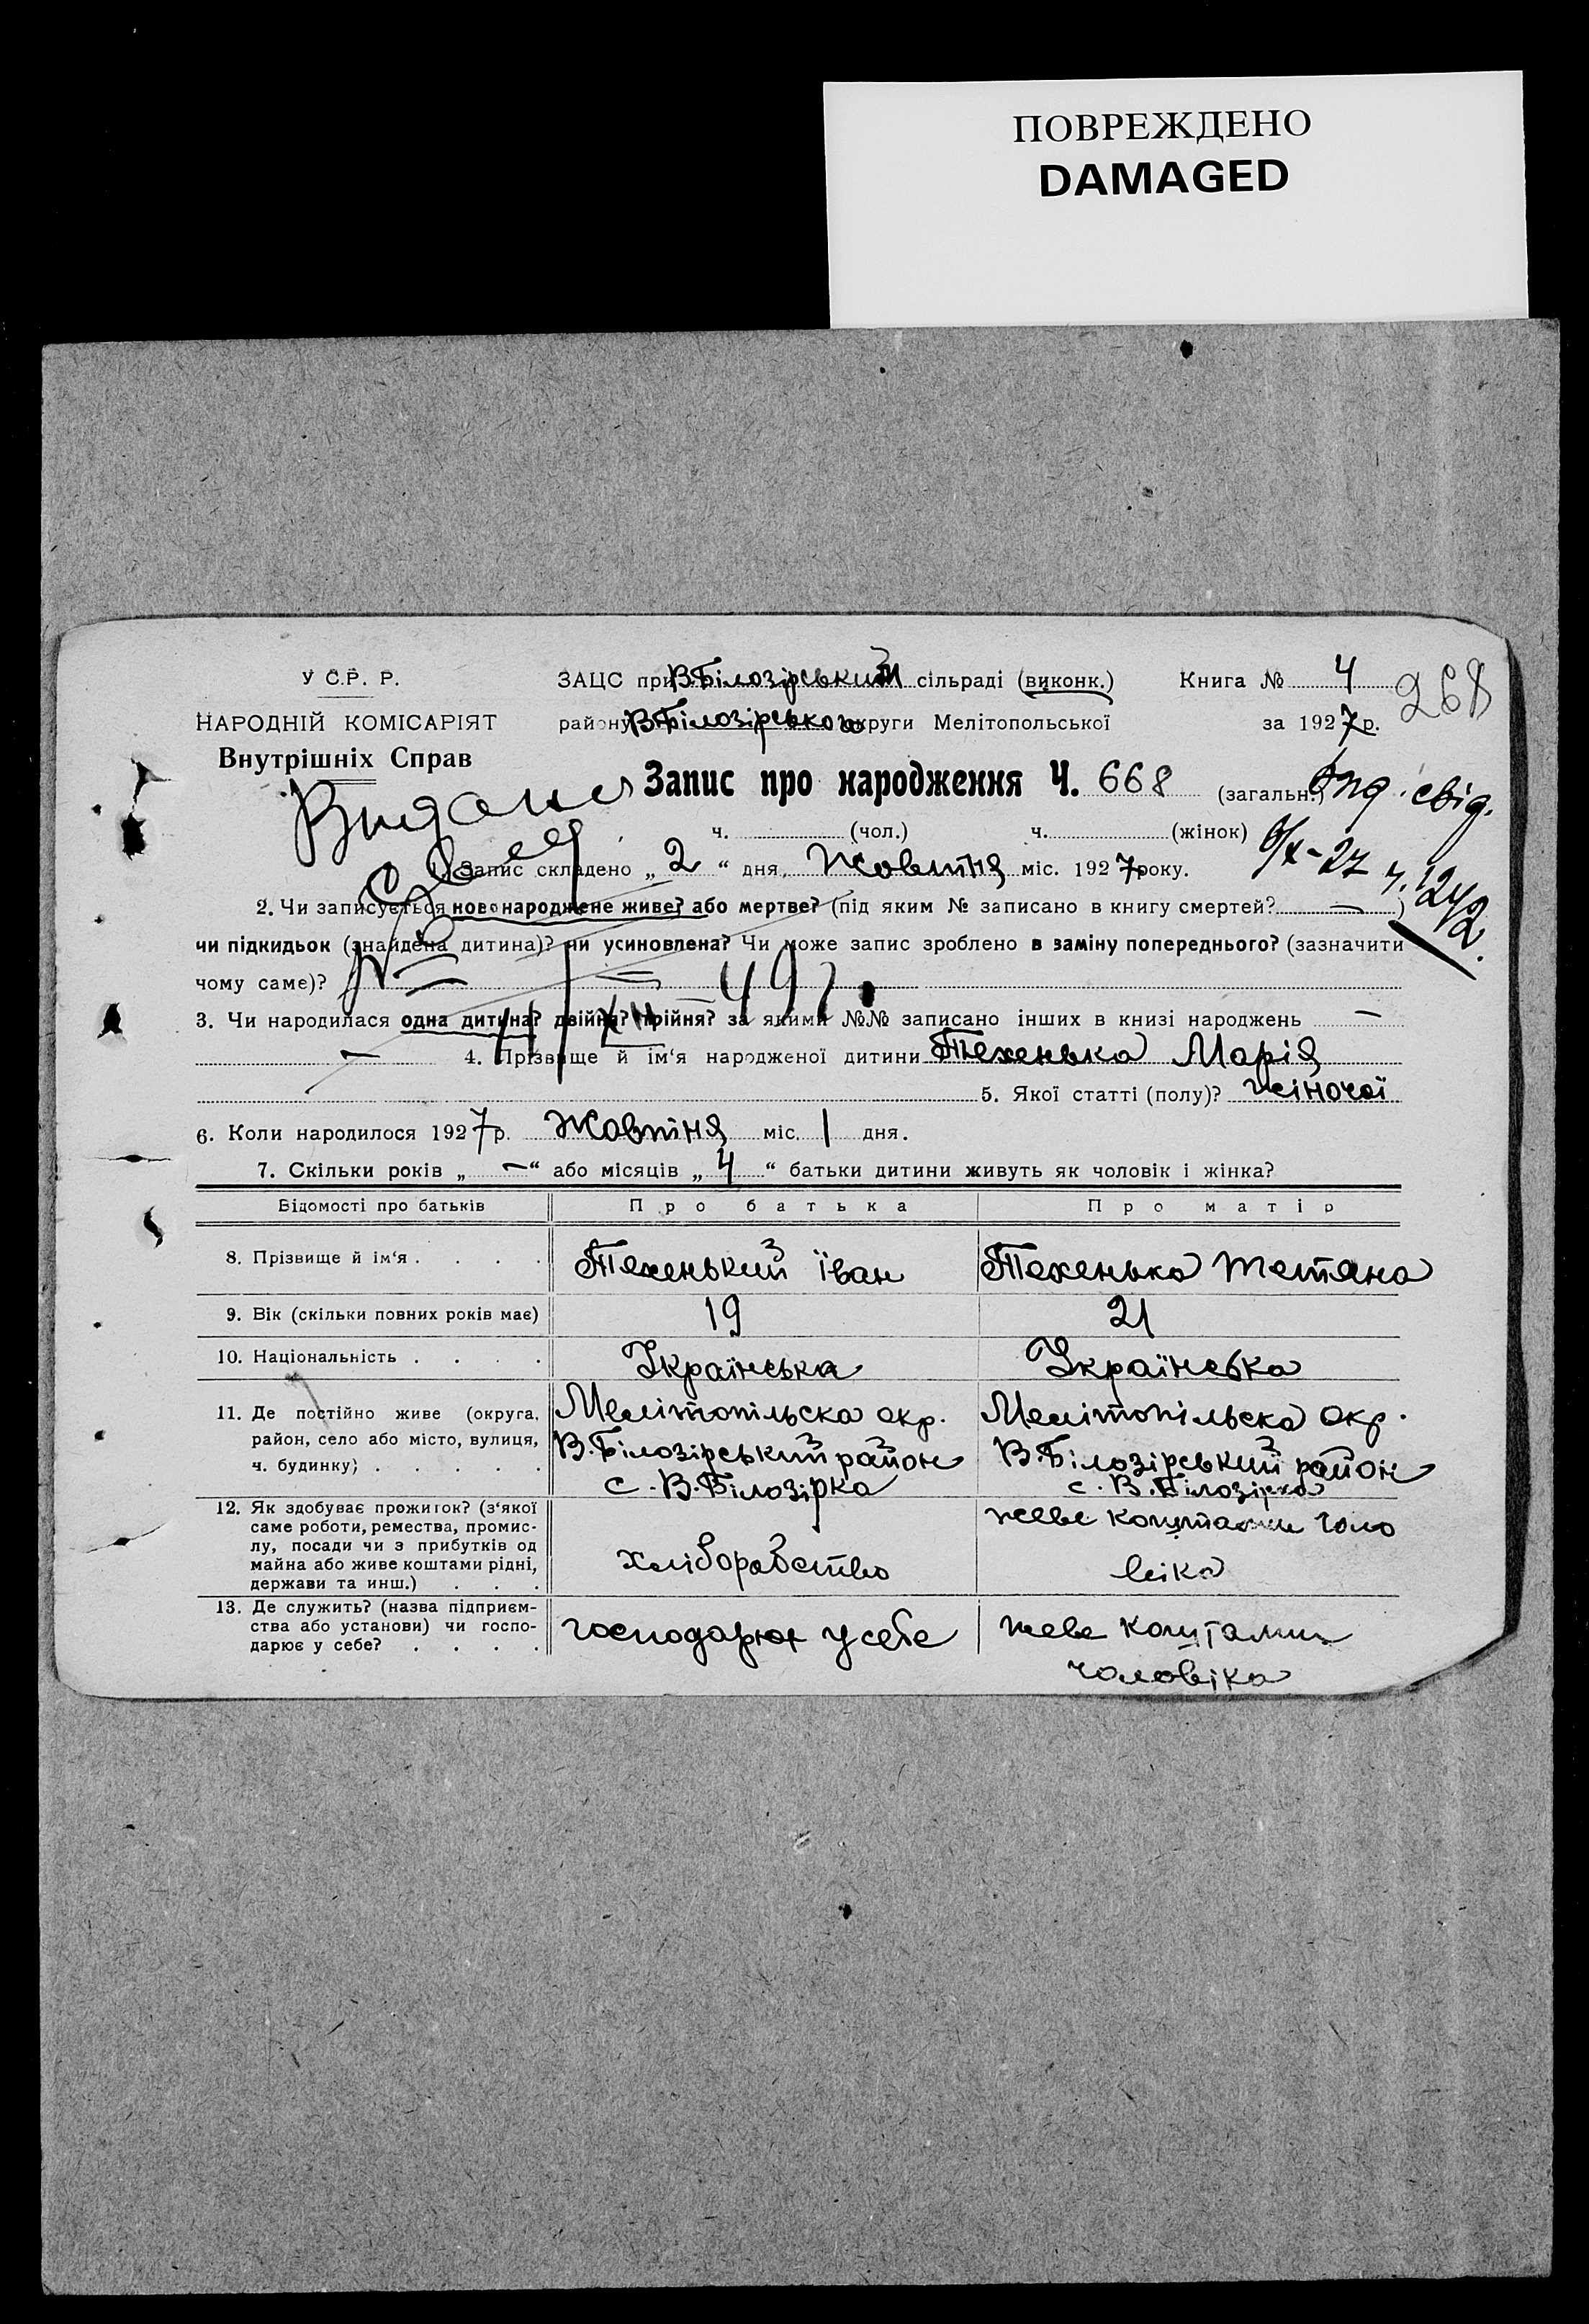 ПОВРЕЖДЕНО
DAMAGED
У С.Р. Р.
НАРОДНІЙ КОМІСАРІЯТ
Внутрішніх Справ
ЗАЦС при В Білозірський сільраді (виконк.)
району В Білозірського округи Мелітопольської
Книга № 4
за 1927 р.
268
Запис про народження Ч. 668 (загальн.)
ч. (чол.) ч. (жінок)
Видано
свід.
6/X-27 ч. 1242.
1. Запис складено „ 2 “ дня, Жовтня міс. 1927 року.
2. Чи записується новонароджене живе? або мертве? (під яким № записано в книгу смертей? — )
чи підкидьок (знайдена дитина)? чи усиновлена? Чи може запис зроблено в заміну попереднього? (зазначити
чому саме)? — —
3. Чи народилася одна дитина? двійня? трійня? за якими №№ записано інших в книзі народжень —
— 4. Прізвище й ім‘я народженої дитини Техенька Марія
5. Якої статті (полу)? жіночої
6. Коли народилося 1927 р. Жовтня міс. 1 дня.
7. Скільки років „ — “ або місяців „ 4 “ батьки дитини живуть як чоловік і жінка?
Відомості про батьків Про батька Про матір
8. Прізвище й ім‘я . . . . Техенький Їван Техенька Тетяна
9. Вік (скільки повних років має) 19 21
10. Національність . . . . Українська Українська
11. Де постійно живе (округа, район, село або місто, вулиця, ч. будинку) . . . . .
Мелітопільска окр. Мелітопільска окр.
В. Білозірський район В. Білозірський район
с. В. Білозірка с. В. Білозірка
12. Як здобуває прожиток? (з‘якої саме роботи, ремества, промис-
лу, посади чи з прибутків од
майна або живе коштами рідні,
держави та инш.) . . .
хліборобство
живе коштами чоло
віка
13. Де служить? (назва підприєм-
ства або установи) чи госпо-
дарює у себе? . . . .
господарює у себе
живе коштами
чоловіка